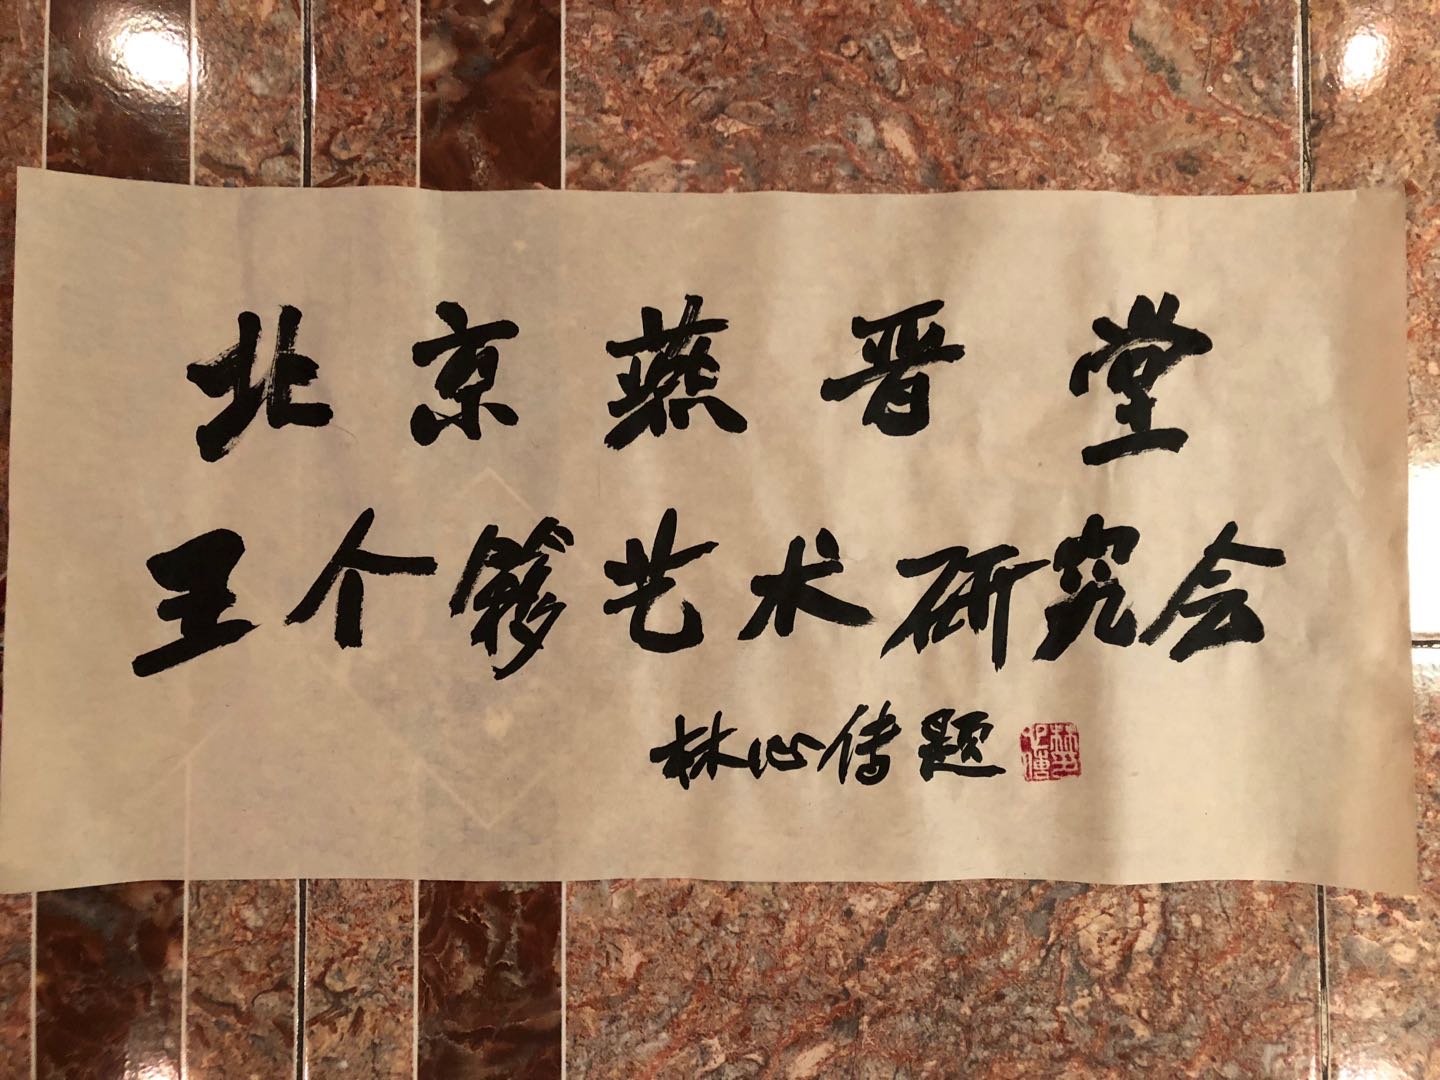 北京燕晋堂
王个簃艺术研究会
林心传题
林心传